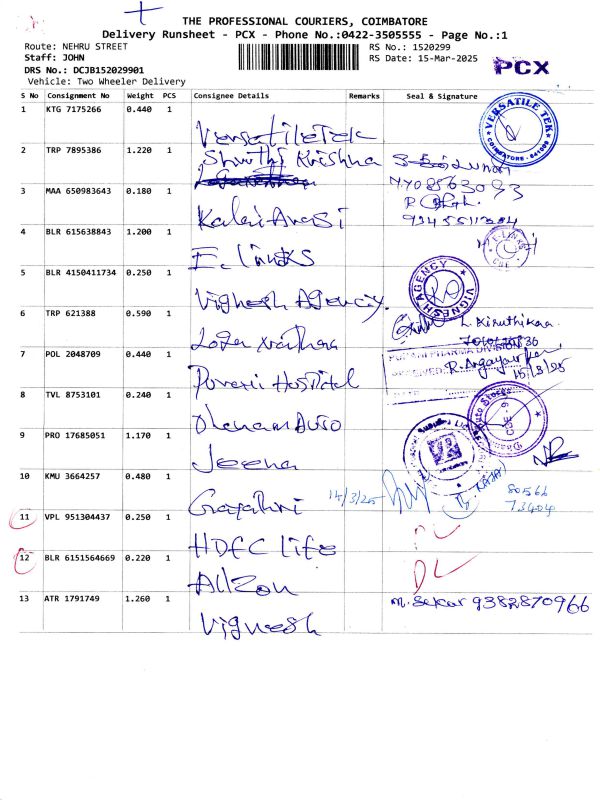 THE PROFESSIONAL COURIERS, COIMBATORE
Delivery Runsheet - PCX - Phone No.:0422-3505555 - Page No.:1
Route: NEHRU STREET
RS No.: 1520299
Staff: JOHN
RS Date: 15-Mar-2025
PCX
DRS No.: DCJB152029901
Vehicle: Two Wheeler Delivery
S No Consignment No Weight PCS Consignee Details Remarks Seal & Signature
1 KTG 7175266 0.440 1 VersatileTek VERSATILE TEK COIMBATORE - 641009
2 TRP 7895386 1.220 1 Shruthi Krishna
3 MAA 650983643 0.180 1 KalaiArasi
4 BLR 615638843 1.200 1 E. links E-LINKS CBE
5 BLR 4150411734 0.250 1 Vighesh Agency VIGNESH AGENCY
6 TRP 621388 0.590 1 L. Kiruthikaa
7 POL 2048709 0.440 1 Hospital PHARMA DIVISION 15/3/25
8 TVL 8753101 0.240 1 Auto Stores CBE - 9
9 PRO 17685051 1.170 1 Jeena
10 KMU 3664257 0.480 1 Gayathri 14/3/25 80566 73404
11 VPL 951304437 0.250 1 HDFC life
12 BLR 6151564669 0.220 1 AllZon DL
13 ATR 1791749 1.260 1 Vignesh M. Sekar 9382870966